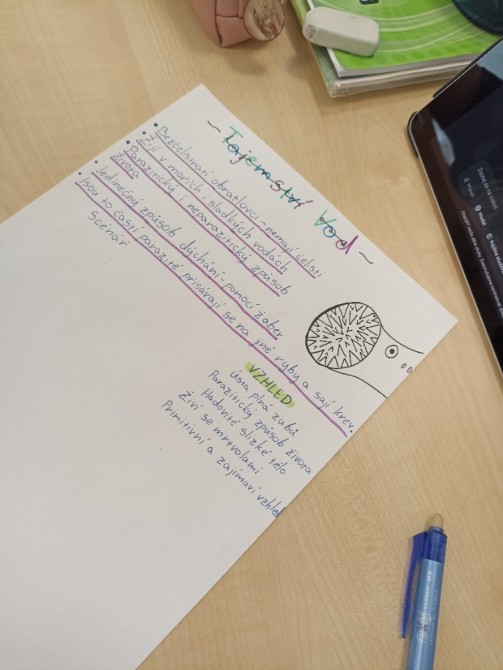 ~ Tajemství vod ~
• Bezčelisnatí obratlovci - nemají čelisti
• Žijí v mořích, sladkých vodách
• Parazitický i neparazitický způsob
života
• Jedinečný způsob dýchání - pomocí žaber
• Jsou to častí parazité přisávají se na jiné ryby a sají krev.
Scénář
VZHLED
Ústa plná zubů
Parazitický způsob života
Hadovité slizké tělo
Živí se mrtvolami
Primitivní a zajímaví vzhled